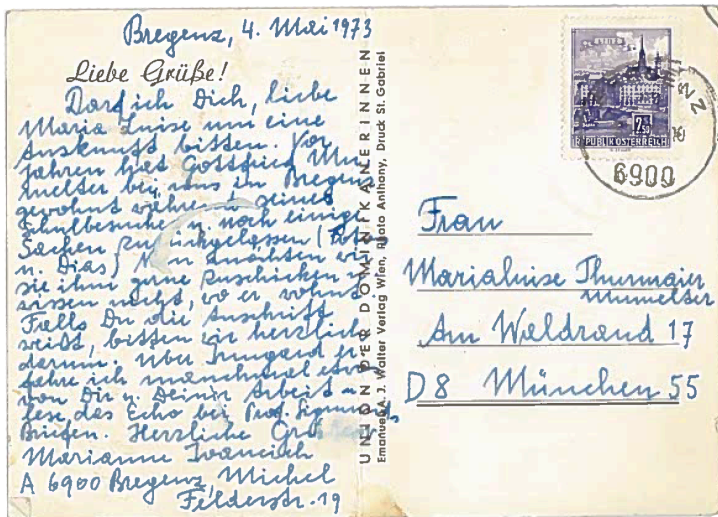 Bregenz, 4. Mai 1973
Liebe Grüße!
Darf ich Dich, liebe
Maria Luise um eine
Auskunft bitten. Vor
Jahren hat Gottfried Mu-
melter bei uns in Bregenz
gewohnt während seines
Schulbesuches u. noch einige
Sachen zurückgelassen (Foto
u. Dias) Nun möchten wir
sie ihm gerne zuschicken u.
wissen nicht, wo er wohnt.
Falls Du die Anschrift
weißt, bitten wir herzlich
darum. Über Irmgard er-
fahre ich manchmal etwas
von Dir u. Deiner Arbeit u.
lese das Echo bei Prof.
Briefen. Herzliche Grüße
Marianne
A 6900 Bregenz, Michel
Felderstr. 19
UNION DER DOMINIKANERINNEN
Emanuel A. J. Walter Verlag Wien, Photo Anthony, Druck St. Gabriel
7.50
REPUBLIK ÖSTERREICH
6900
Frau
Marialuise Thurmair
Mumelter
Am Waldrand 17
D 8 München 55